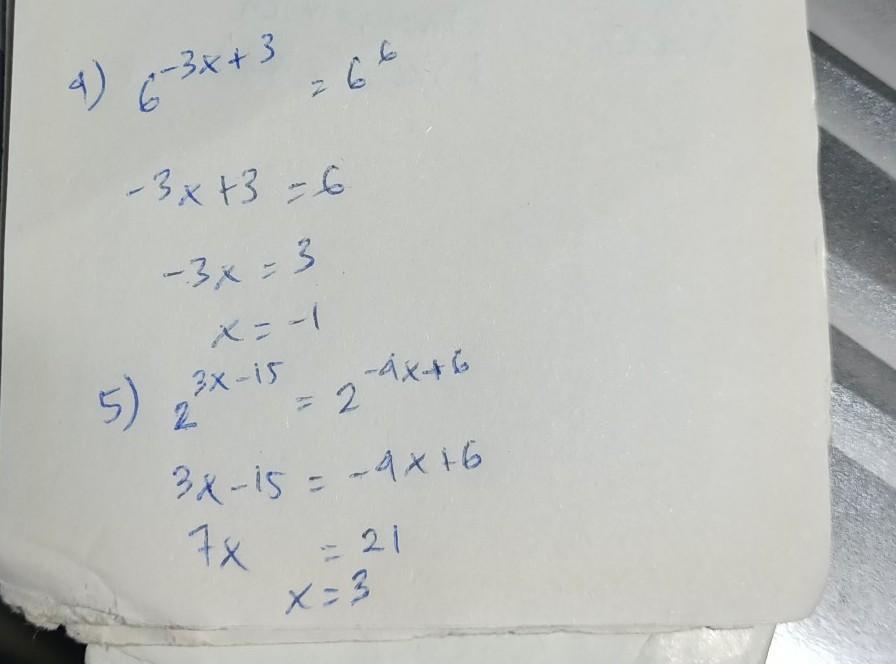 4) 6^{-3x+3} = 6^6
-3x+3 = 6
-3x = 3
x = -1
5) 2^{3x-15} = 2^{-4x+6}
3x-15 = -4x+6
7x = 21
x = 3